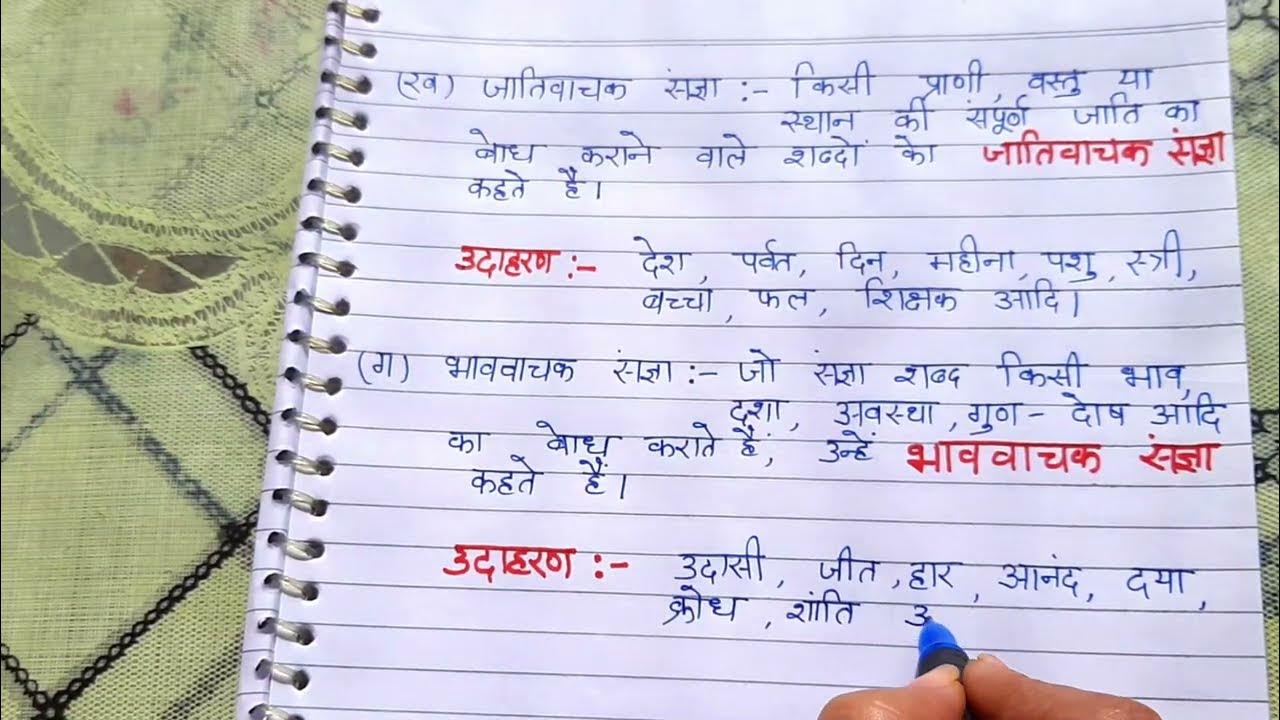 (ख) जातिवाचक संज्ञा :- किसी प्राणी, वस्तु या
स्थान की संपूर्ण जाति का
बोध कराने वाले शब्दों को जातिवाचक संज्ञा
कहते हैं।
उदाहरण :- देश, पर्वत, दिन, महीना, पशु, स्त्री,
बच्चा, फल, शिक्षक आदि।
(ग) भाववाचक संज्ञा :- जो संज्ञा शब्द किसी भाव,
दशा, अवस्था, गुण - दोष आदि
का बोध कराते हैं, उन्हें भाववाचक संज्ञा
कहते हैं।
उदाहरण :- उदासी, जीत, हार, आनंद, दया,
क्रोध, शांति